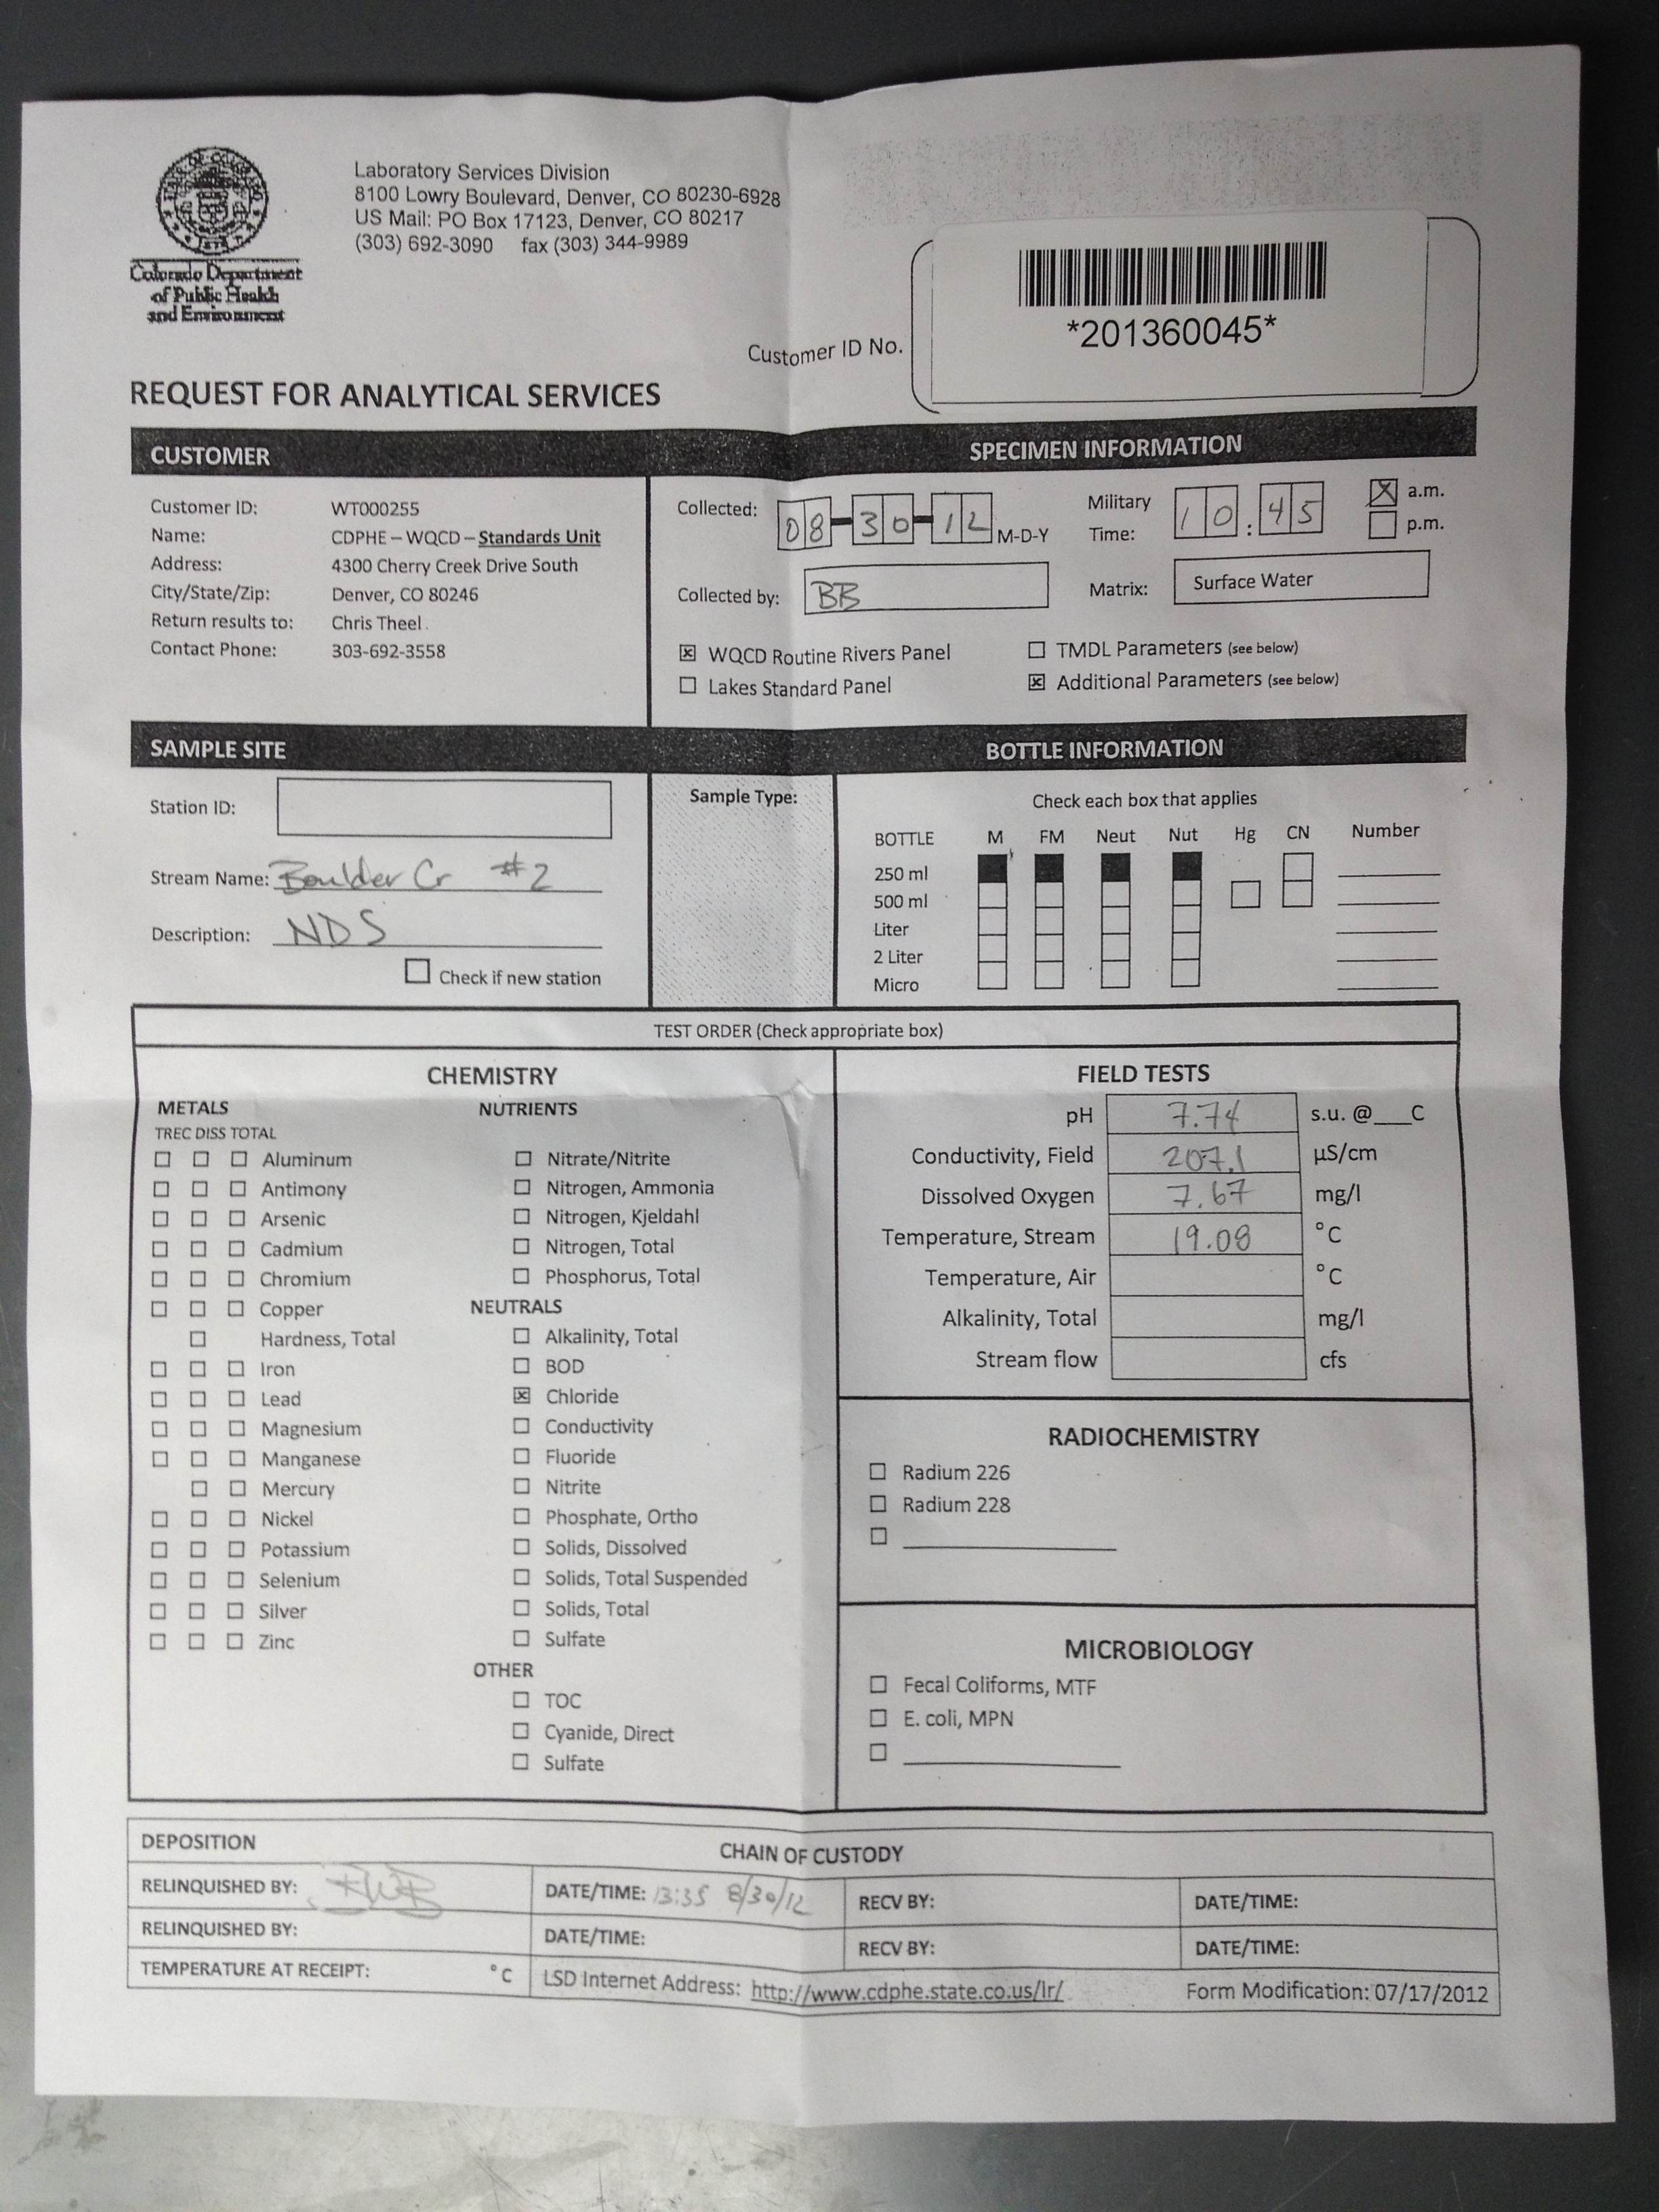 Colorado Department
of Public Health
and Environment
Laboratory Services Division
8100 Lowry Boulevard, Denver, CO 80230-6928
US Mail: PO Box 17123, Denver, CO 80217
(303) 692-3090 fax (303) 344-9989
Customer ID No.
*201360045*
REQUEST FOR ANALYTICAL SERVICES
CUSTOMER
Customer ID: WT000255
Name: CDPHE – WQCD – Standards Unit
Address: 4300 Cherry Creek Drive South
City/State/Zip: Denver, CO 80246
Return results to: Chris Theel
Contact Phone: 303-692-3558
SPECIMEN INFORMATION
Collected: 08-30-12 M-D-Y
Military Time: 10:45
a.m.
p.m.
Collected by: BB
Matrix: Surface Water
WQCD Routine Rivers Panel
TMDL Parameters (see below)
Lakes Standard Panel
Additional Parameters (see below)
SAMPLE SITE
Station ID:
Stream Name: Boulder Cr #2
Description: NDS
Check if new station
Sample Type:
BOTTLE INFORMATION
Check each box that applies
BOTTLE M FM Neut Nut Hg CN Number
250 ml
500 ml
Liter
2 Liter
Micro
TEST ORDER (Check appropriate box)
CHEMISTRY
METALS
TREC DISS TOTAL
Aluminum
Antimony
Arsenic
Cadmium
Chromium
Copper
Hardness, Total
Iron
Lead
Magnesium
Manganese
Mercury
Nickel
Potassium
Selenium
Silver
Zinc
NUTRIENTS
Nitrate/Nitrite
Nitrogen, Ammonia
Nitrogen, Kjeldahl
Nitrogen, Total
Phosphorus, Total
NEUTRALS
Alkalinity, Total
BOD
Chloride
Conductivity
Fluoride
Nitrite
Phosphate, Ortho
Solids, Dissolved
Solids, Total Suspended
Solids, Total
Sulfate
OTHER
TOC
Cyanide, Direct
Sulfate
FIELD TESTS
pH 7.74 s.u. @___C
Conductivity, Field 207.1 µS/cm
Dissolved Oxygen 7.67 mg/l
Temperature, Stream 19.08 °C
Temperature, Air °C
Alkalinity, Total mg/l
Stream flow cfs
RADIOCHEMISTRY
Radium 226
Radium 228
MICROBIOLOGY
Fecal Coliforms, MTF
E. coli, MPN
DEPOSITION CHAIN OF CUSTODY
RELINQUISHED BY: DATE/TIME: 13:35 8/30/12 RECV BY: DATE/TIME:
RELINQUISHED BY: DATE/TIME: RECV BY: DATE/TIME:
TEMPERATURE AT RECEIPT: °C LSD Internet Address: http://www.cdphe.state.co.us/lr/ Form Modification: 07/17/2012